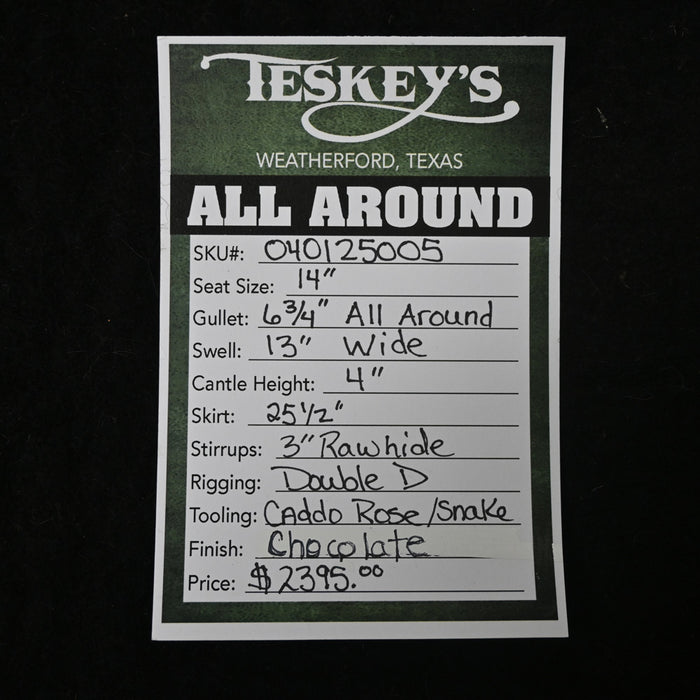 TESKEY'S
WEATHERFORD, TEXAS
ALL AROUND
SKU#: 040125005
Seat Size: 14"
Gullet: 6 3/4" All Around
Swell: 13" Wide
Cantle Height: 4"
Skirt: 25 1/2"
Stirrups: 3" Rawhide
Rigging: Double D
Tooling: Caddo Rose/Snake
Finish: Chocolate
Price: $2395.00